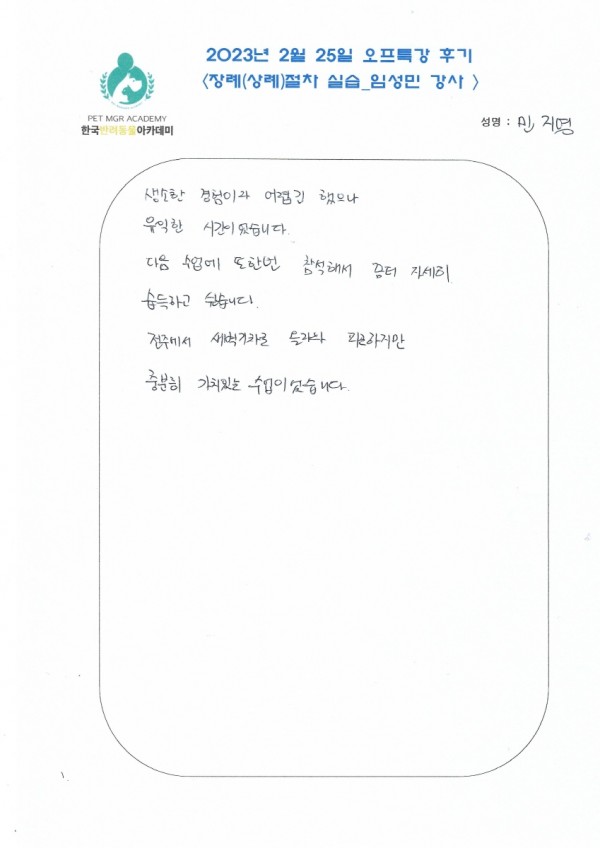 2023년 2월 25일 오프특강 후기
<장례(상례)절차 실습_임성민 강사 >
PET MGR ACADEMY
한국반려동물아카데미
성명 : 민지영
생소한 경험이라 어렵긴 했으나
유익한 시간이었습니다.
다음 수업에 또한번 참석해서 좀더 자세히
습득하고 싶습니다.
전주에서 새벽기차로 올라와 피곤하지만
충분히 가치있는 수업이었습니다.